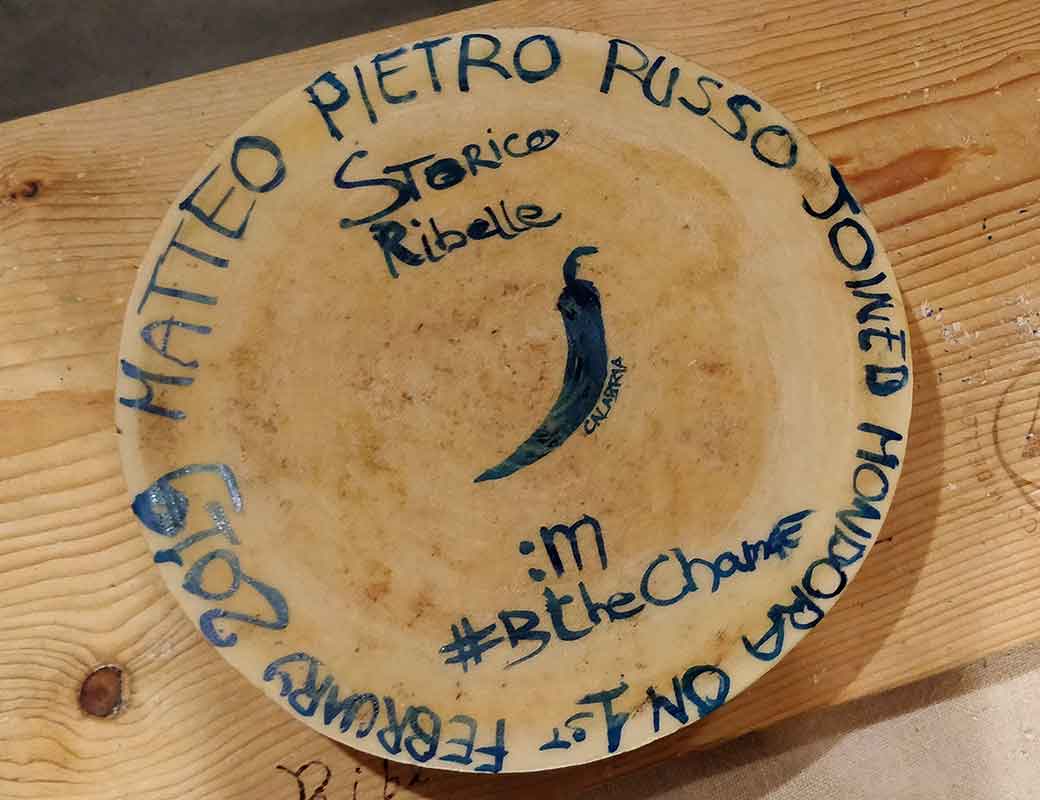 MATTEO PIETRO RUSSO JOINED MONDORA ON 1ST FEBRUARY 2019
STORICO
Ribelle
CALABRIA
:m
#BtheChange
Ribe